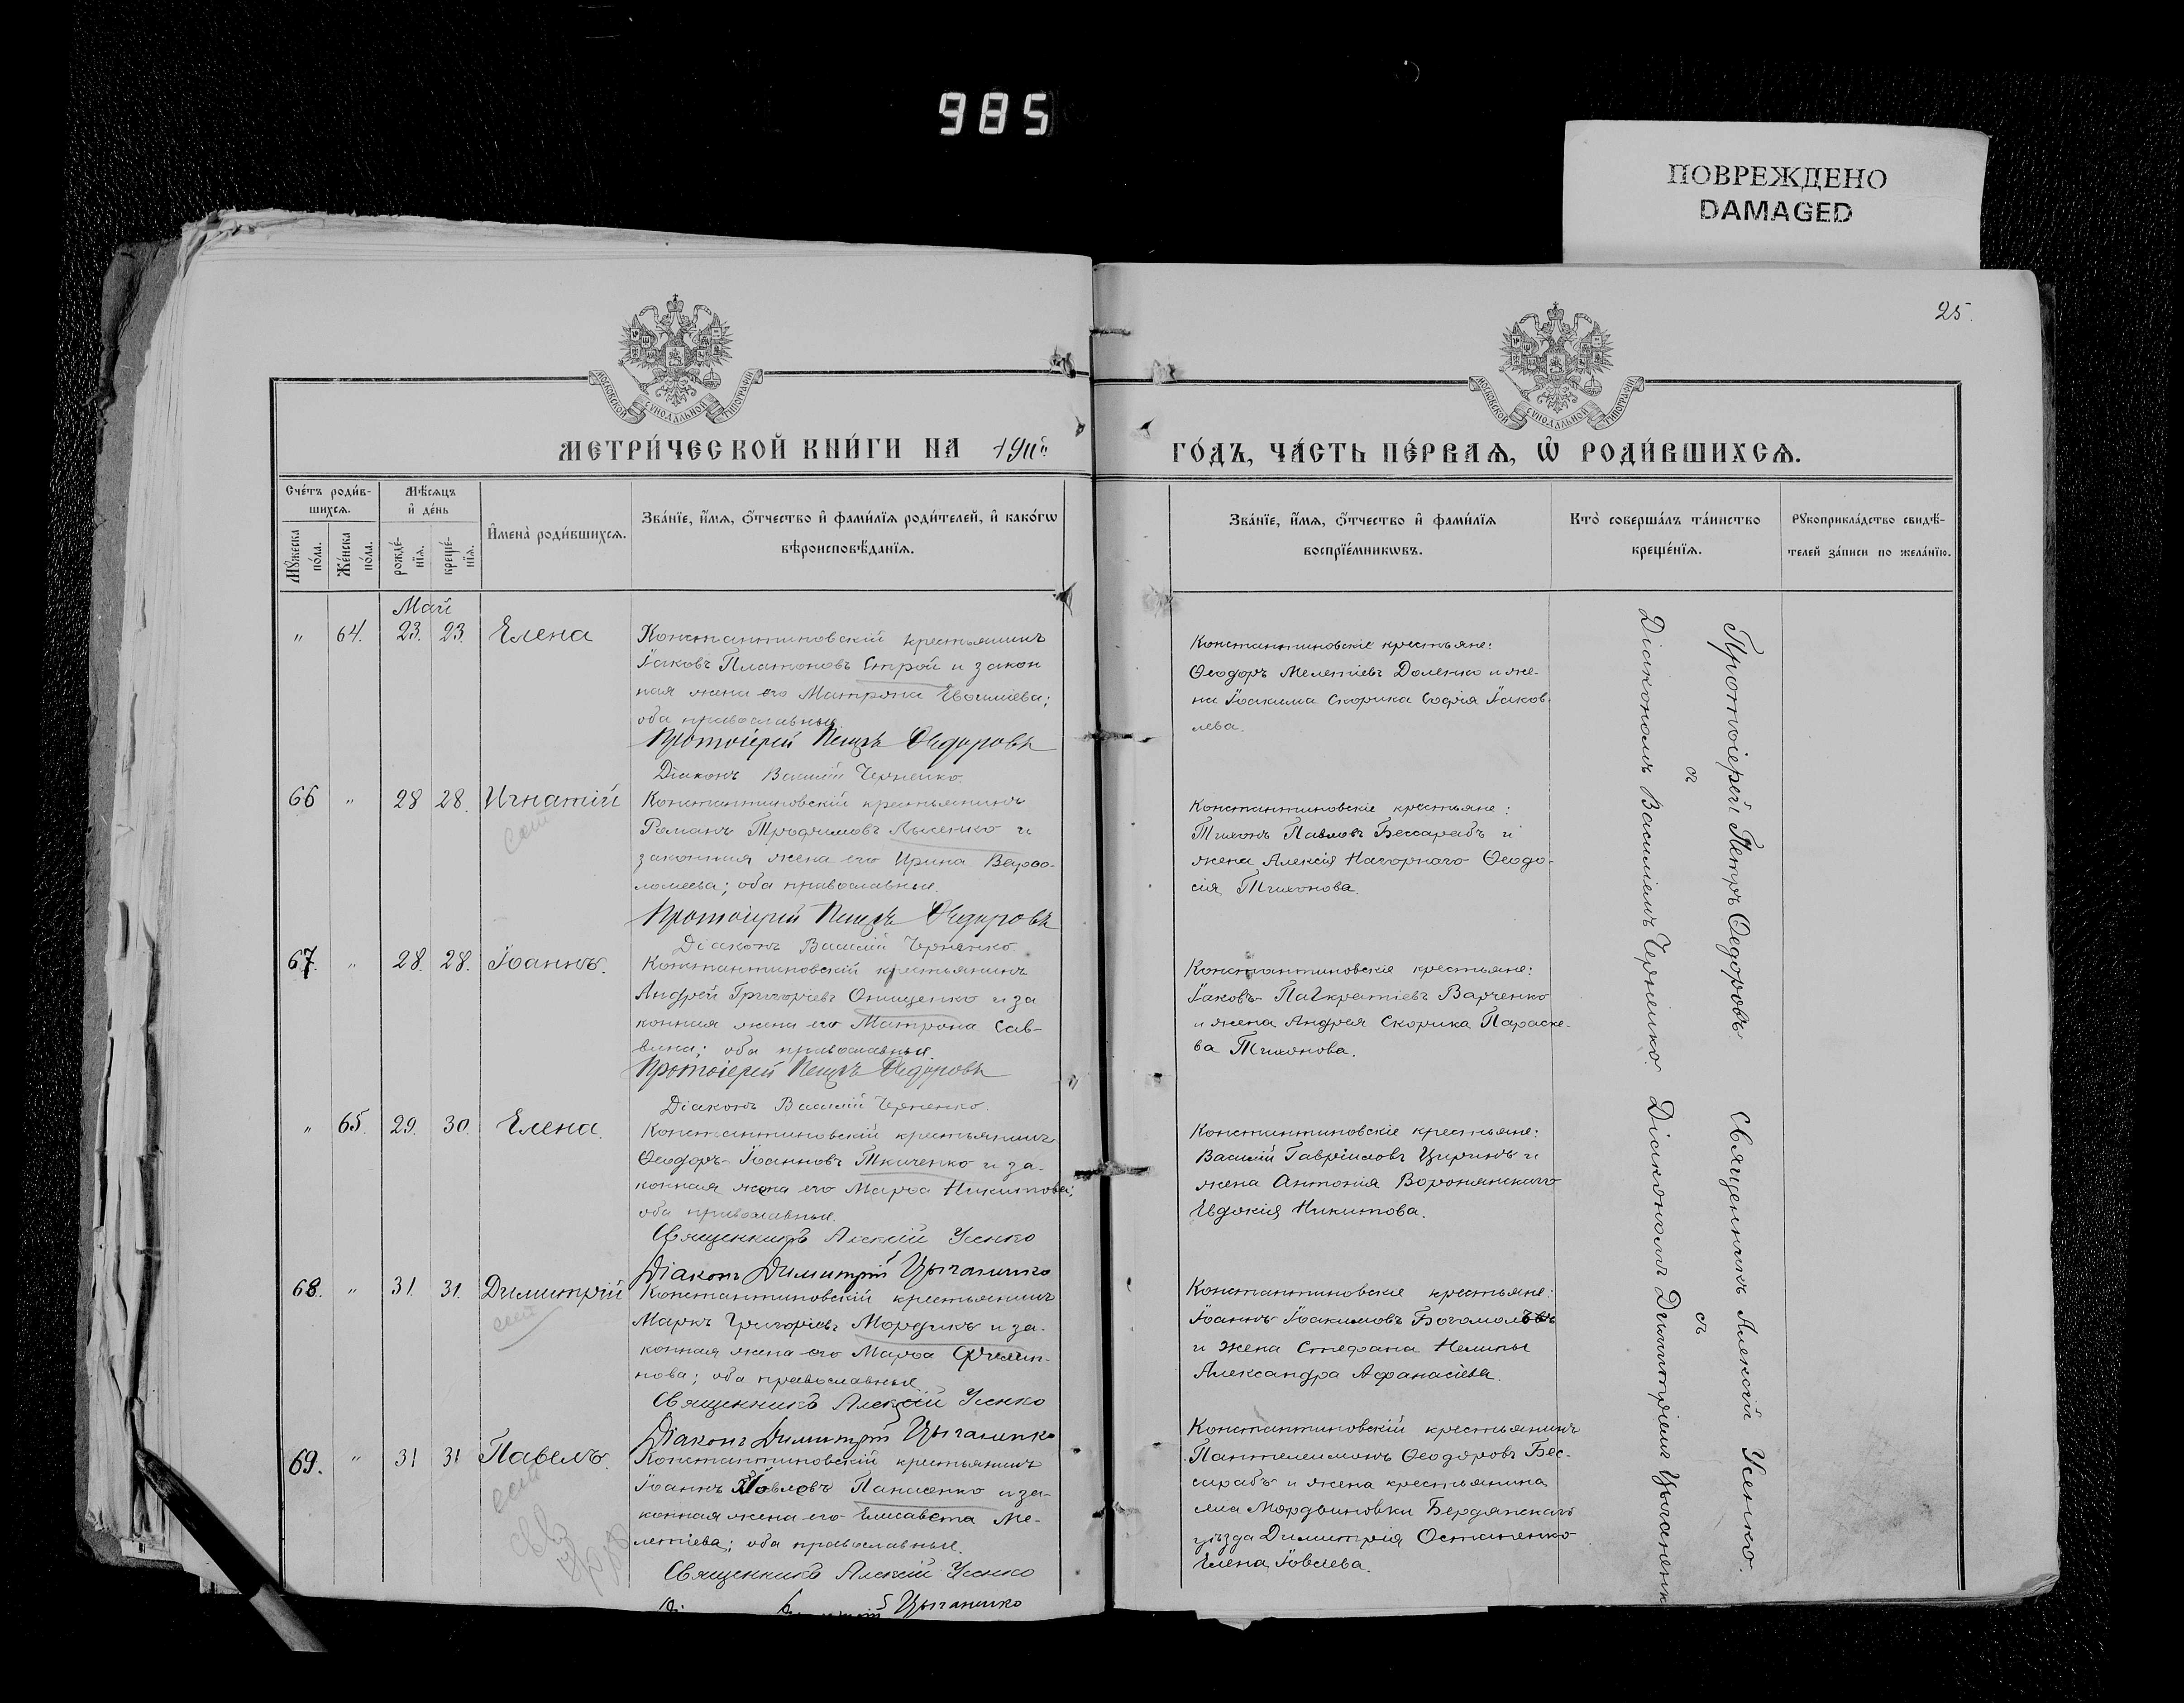 985
ПОВРЕЖДЕНО
DAMAGED
25.
МОСКОВСКОЙ СѴНОДАЛЬНОЙ ТИПОГРАФІИ
МОСКОВСКОЙ СѴНОДАЛЬНОЙ ТИПОГРАФІИ
МЕТРИ́ЧЕСКОЙ КНИ́ГИ НА 1911
ГО́ДЪ, ЧА́СТЬ ПЕ́РВАѦ, Ѡ҆ РОДИ́ВШИХСѦ.
Сче́тъ роди́в-
шихсѧ.
Мꙋжеска по́ла.
Же́нска по́ла.
Мѣ́сѧцъ
и҆ де́нь
рожде́-
нїѧ.
креще́-
нїѧ.
И҆мена̀ роди́вшихсѧ.
Зва́нїе, и҆́мѧ, ѻ҆́тчество и҆ фами́лїѧ роди́телей, и҆ како́гѡ
вѣроисповѣ́данїѧ.
Зва́нїе, и҆́мѧ, ѻ҆́тчество и҆ фами́лїѧ
воспрїе́мникѡвъ.
Кто̀ соверша́лъ та́инство
креще́нїѧ.
Рꙋкоприкла́дство свидѣ́-
телей за́писи по жела́нїю.
Май
" 64. 23. 23 Елена
Константиновскій крестьянинъ
Іаковъ Платоновъ Строй и закон
ная жена его Матрона
оба православные.
Протоіерей Петръ Ѳедоровъ
Діаконъ Василій Черненко.
Константиновскіе крестьяне:
Ѳеодоръ Мелетіевъ Доленко и же-
на Іоакима Скорика Софія Іаков-
лева.
66 " 28 28. Игнатій
Константиновскій крестьянинъ
Романъ Трофимовъ Лысенко и
законная жена его Ирина Варѳо-
ломеева; оба православные.
Протоіерей Петръ Ѳедоровъ
Діаконъ Василій Черненко.
Константиновскіе крестьяне:
Тихонъ Павловъ Бессарабъ и
жена Алексія Нагорнаго Ѳеодо-
сія Тихонова.
67. " 28. 28. Іоаннъ.
Константиновскій крестьянинъ
Андрей Григоріевъ Онищенко и за
конная жена его Матрона Сав-
вина; оба православные.
Протоіерей Петръ Ѳедоровъ
Діаконъ Василій Черненко.
Константиновскіе крестьяне:
Іаковъ Панкратіевъ Варченко
и жена Андрея Скорика Параске-
ва Тихонова.
" 65. 29. 30. Елена.
Константиновскій крестьянинъ
Ѳеодоръ Іоанновъ Ткаченко и за-
конная жена его Марѳа Никитова;
оба православные.
Священникъ Алексій Усенко
Діаконъ Димитрій Цыганенко
Константиновскіе крестьяне:
Василій Гавріиловъ Циринъ и
жена Антонія Воронянскаго
Евдокія Никитова.
68. " 31. 31. Димитрій
Константиновскій крестьянинъ
Маркъ Григоріевъ Мордикъ и за-
конная жена его Марѳа Филип-
пова; оба православные.
Священникъ Алексій Усенко
Діаконъ Димитрій Цыганенко
Константиновскіе крестьяне:
Іоаннъ Іоакимовъ Богомоловъ
и жена Стефана Нелипы
Александра Афанасіева.
69. " 31 31 Павелъ.
Константиновскій крестьянинъ
Іоаннъ Іовлевъ Панасенко и за-
конная жена его Елисавета Ме-
летіева; оба православные.
Священникъ Алексій Усенко
Цыганенко
Константиновскій крестьянинъ
Пантелеимонъ Ѳеодоровъ Бес-
сарабъ и жена крестьянина
села Мордвиновки Бердянскаго
уѣзда Димитрія Остапенко
Елена Іовлева.
Протоіерей Петръ Ѳедоровъ
съ
Діакономъ Василіемъ Черненко.
Священникъ Алексій Усенко.
съ
Діакономъ Димитріемъ Цыганенко